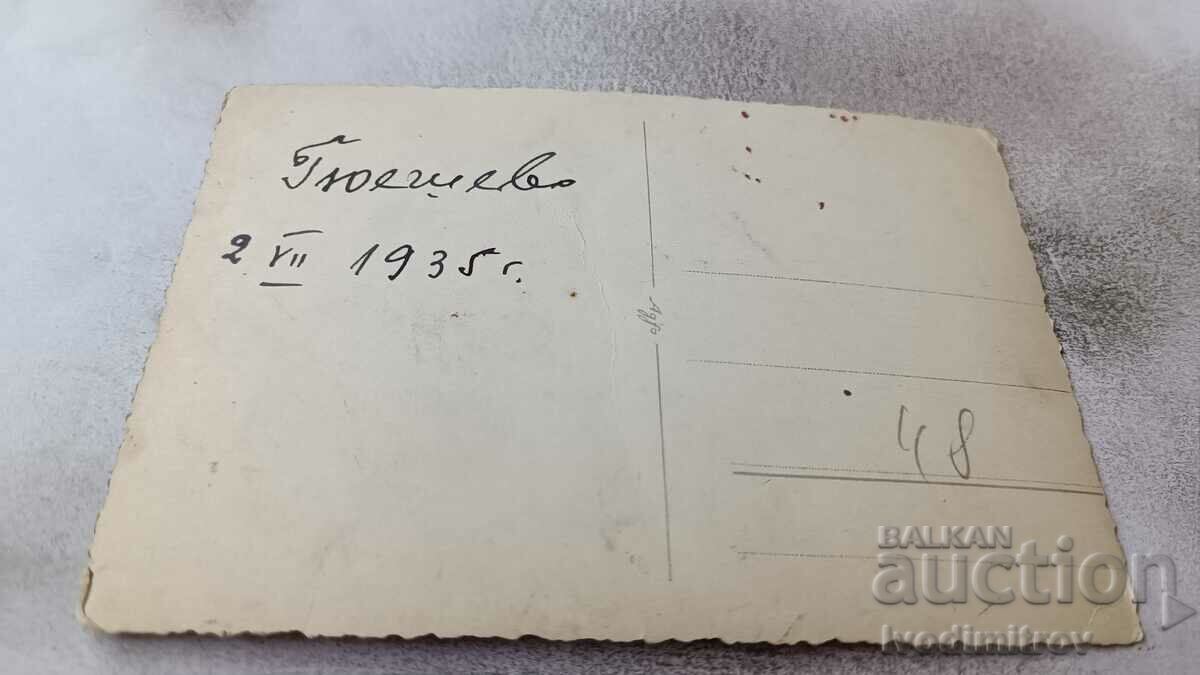 Гюешево
2 VII 1935 г.
Agfa
48
BALKAN
auction
Ivodimitrov